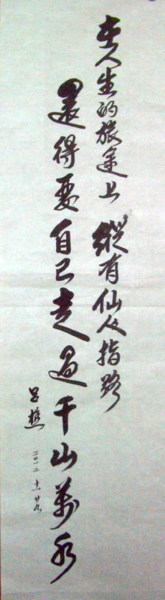 在人生的旅途上 縱有仙人指路
還得要自己走過千山萬水
呂
二〇一二